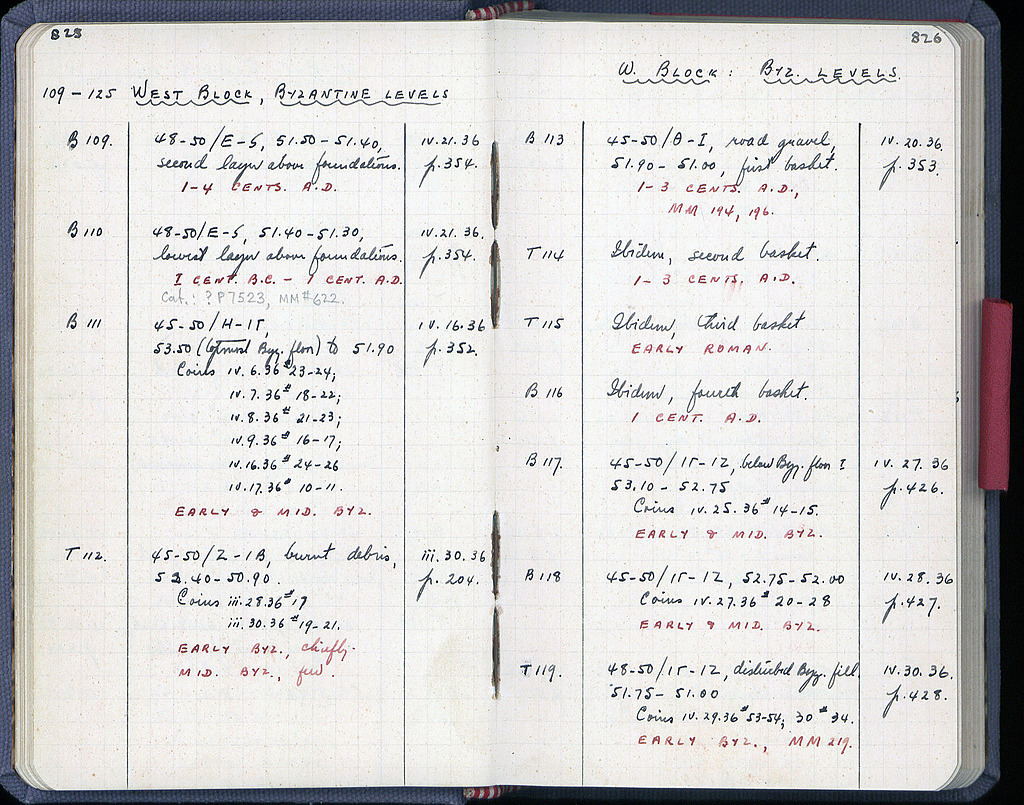 825
109-125 WEST BLOCK, BYZANTINE LEVELS
B 109. 48-50/E-S, 51.50-51.40, IV.21.36
second layer above foundations. p.354.
1-4 CENTS. A.D.
B 110 48-50/E-S, 51.40-51.30, IV.21.36.
lowest layer above foundations. p.354.
I CENT. B.C. - 1 CENT. A.D.
Cat.: ? P7523, MM#622.
B 111 45-50/H-IΓ, IV.16.36
53.50 (topmost Byz. floor) to 51.90 p.352.
Coins IV.6.36 # 23-24;
IV.7.36 # 18-22;
IV.8.36 # 21-23;
IV.9.36 # 16-17;
IV.16.36 # 24-26
IV.17.36 # 10-11.
EARLY & MID. BYZ.
T 112. 45-50/Z-IB, burnt debris, iii.30.36
52.40-50.90. p. 204.
Coins iii.28.36 # 17
iii.30.36 # 19-21.
EARLY BYZ., chiefly.
MID. BYZ., few.
826
W. BLOCK: BYZ. LEVELS.
B 113 45-50/Θ-I, road gravel, IV.20.36.
51.90-51.00, first basket. p.353.
1-3 CENTS. A.D.,
MM 194, 196.
T 114 Ibidem, second basket.
1-3 CENTS. A.D.
T 115 Ibidem, third basket
EARLY ROMAN.
B 116 Ibidem, fourth basket.
1 CENT. A.D.
B 117. 45-50/IΓ-IZ, below Byz. floor I IV.27.36
53.10-52.75 p.426.
Coins IV.25.36 # 14-15.
EARLY & MID. BYZ.
B 118 45-50/IΓ-IZ, 52.75-52.00 IV.28.36
Coins IV.27.36 # 20-28 p.427.
EARLY & MID. BYZ.
T 119. 48-50/IΓ-IZ, disturbed Byz. fill. IV.30.36.
51.75-51.00 p.428.
Coins IV.29.36 # 53-54; 30 # 34.
EARLY BYZ., MM 219.